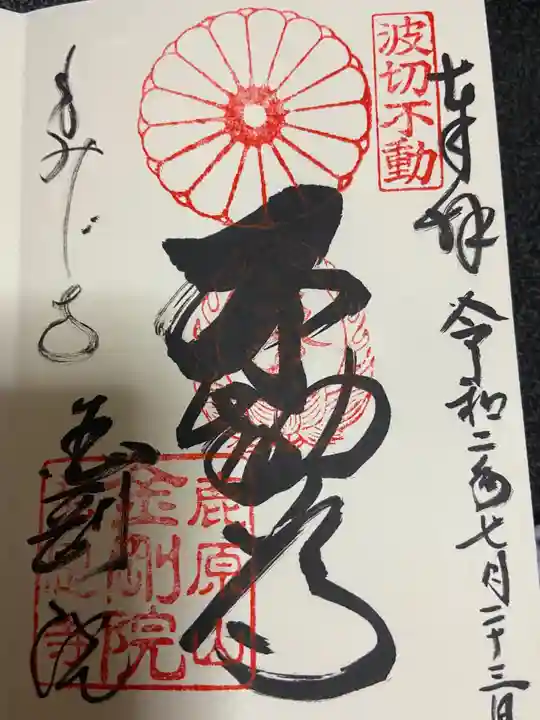 奉拝
令和二年七月二十三日
波切不動
不動尊
もみじ寺
金剛院
鹿原山
金剛院